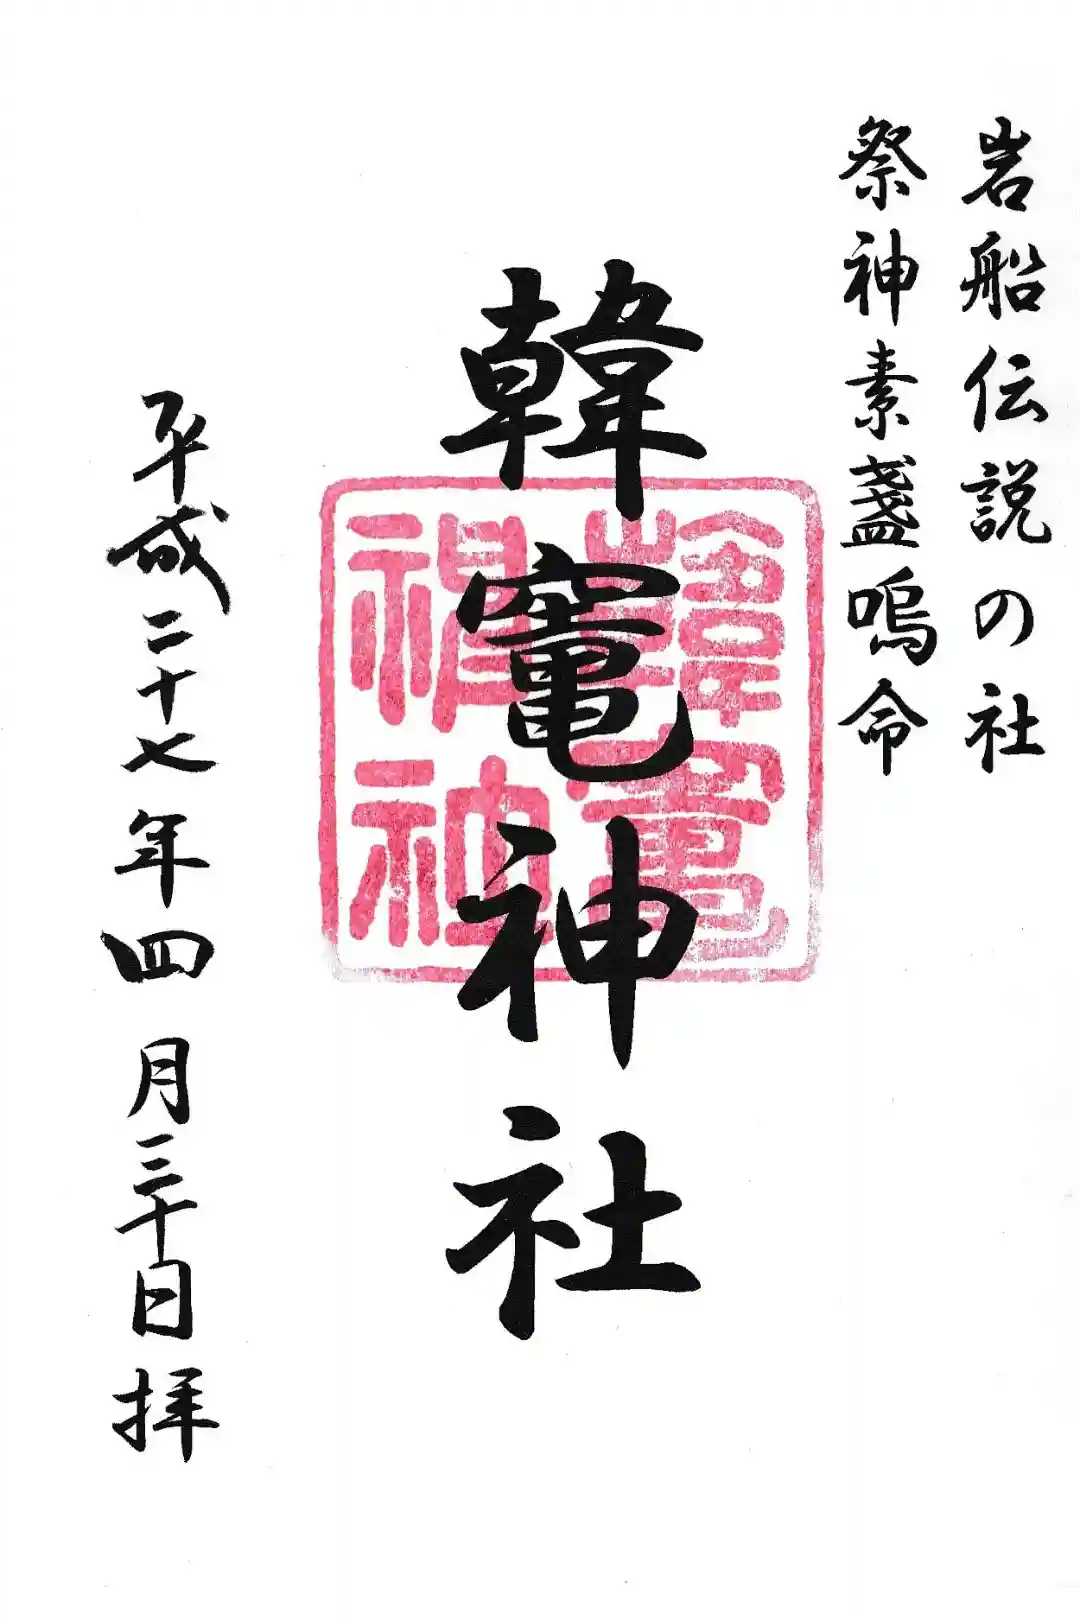 岩船伝説の社
祭神素盞嗚命
韓竈神社
平成二十七年四月三十日拝